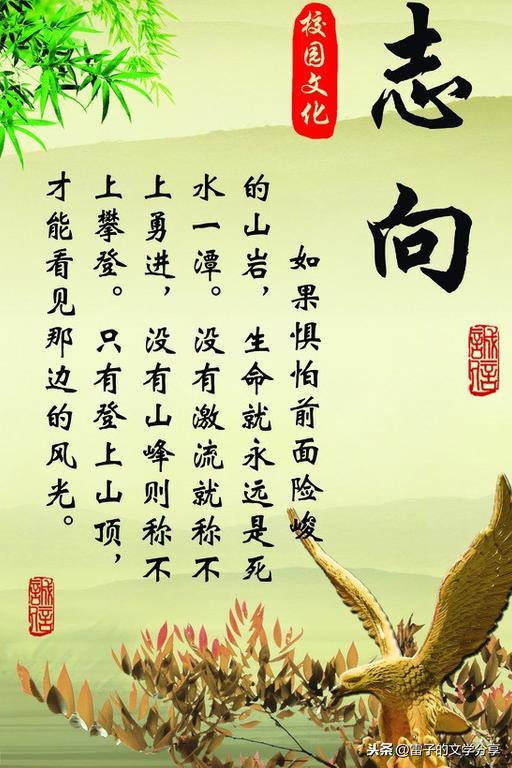 志向
校园文化
誠信
如果惧怕前面险峻
的山岩，生命就永远是死
水一潭。没有激流就称不
上勇进，没有山峰则称不
上攀登。只有登上山顶，
才能看见那边的风光。
誠信
头条@雷子的文学分享